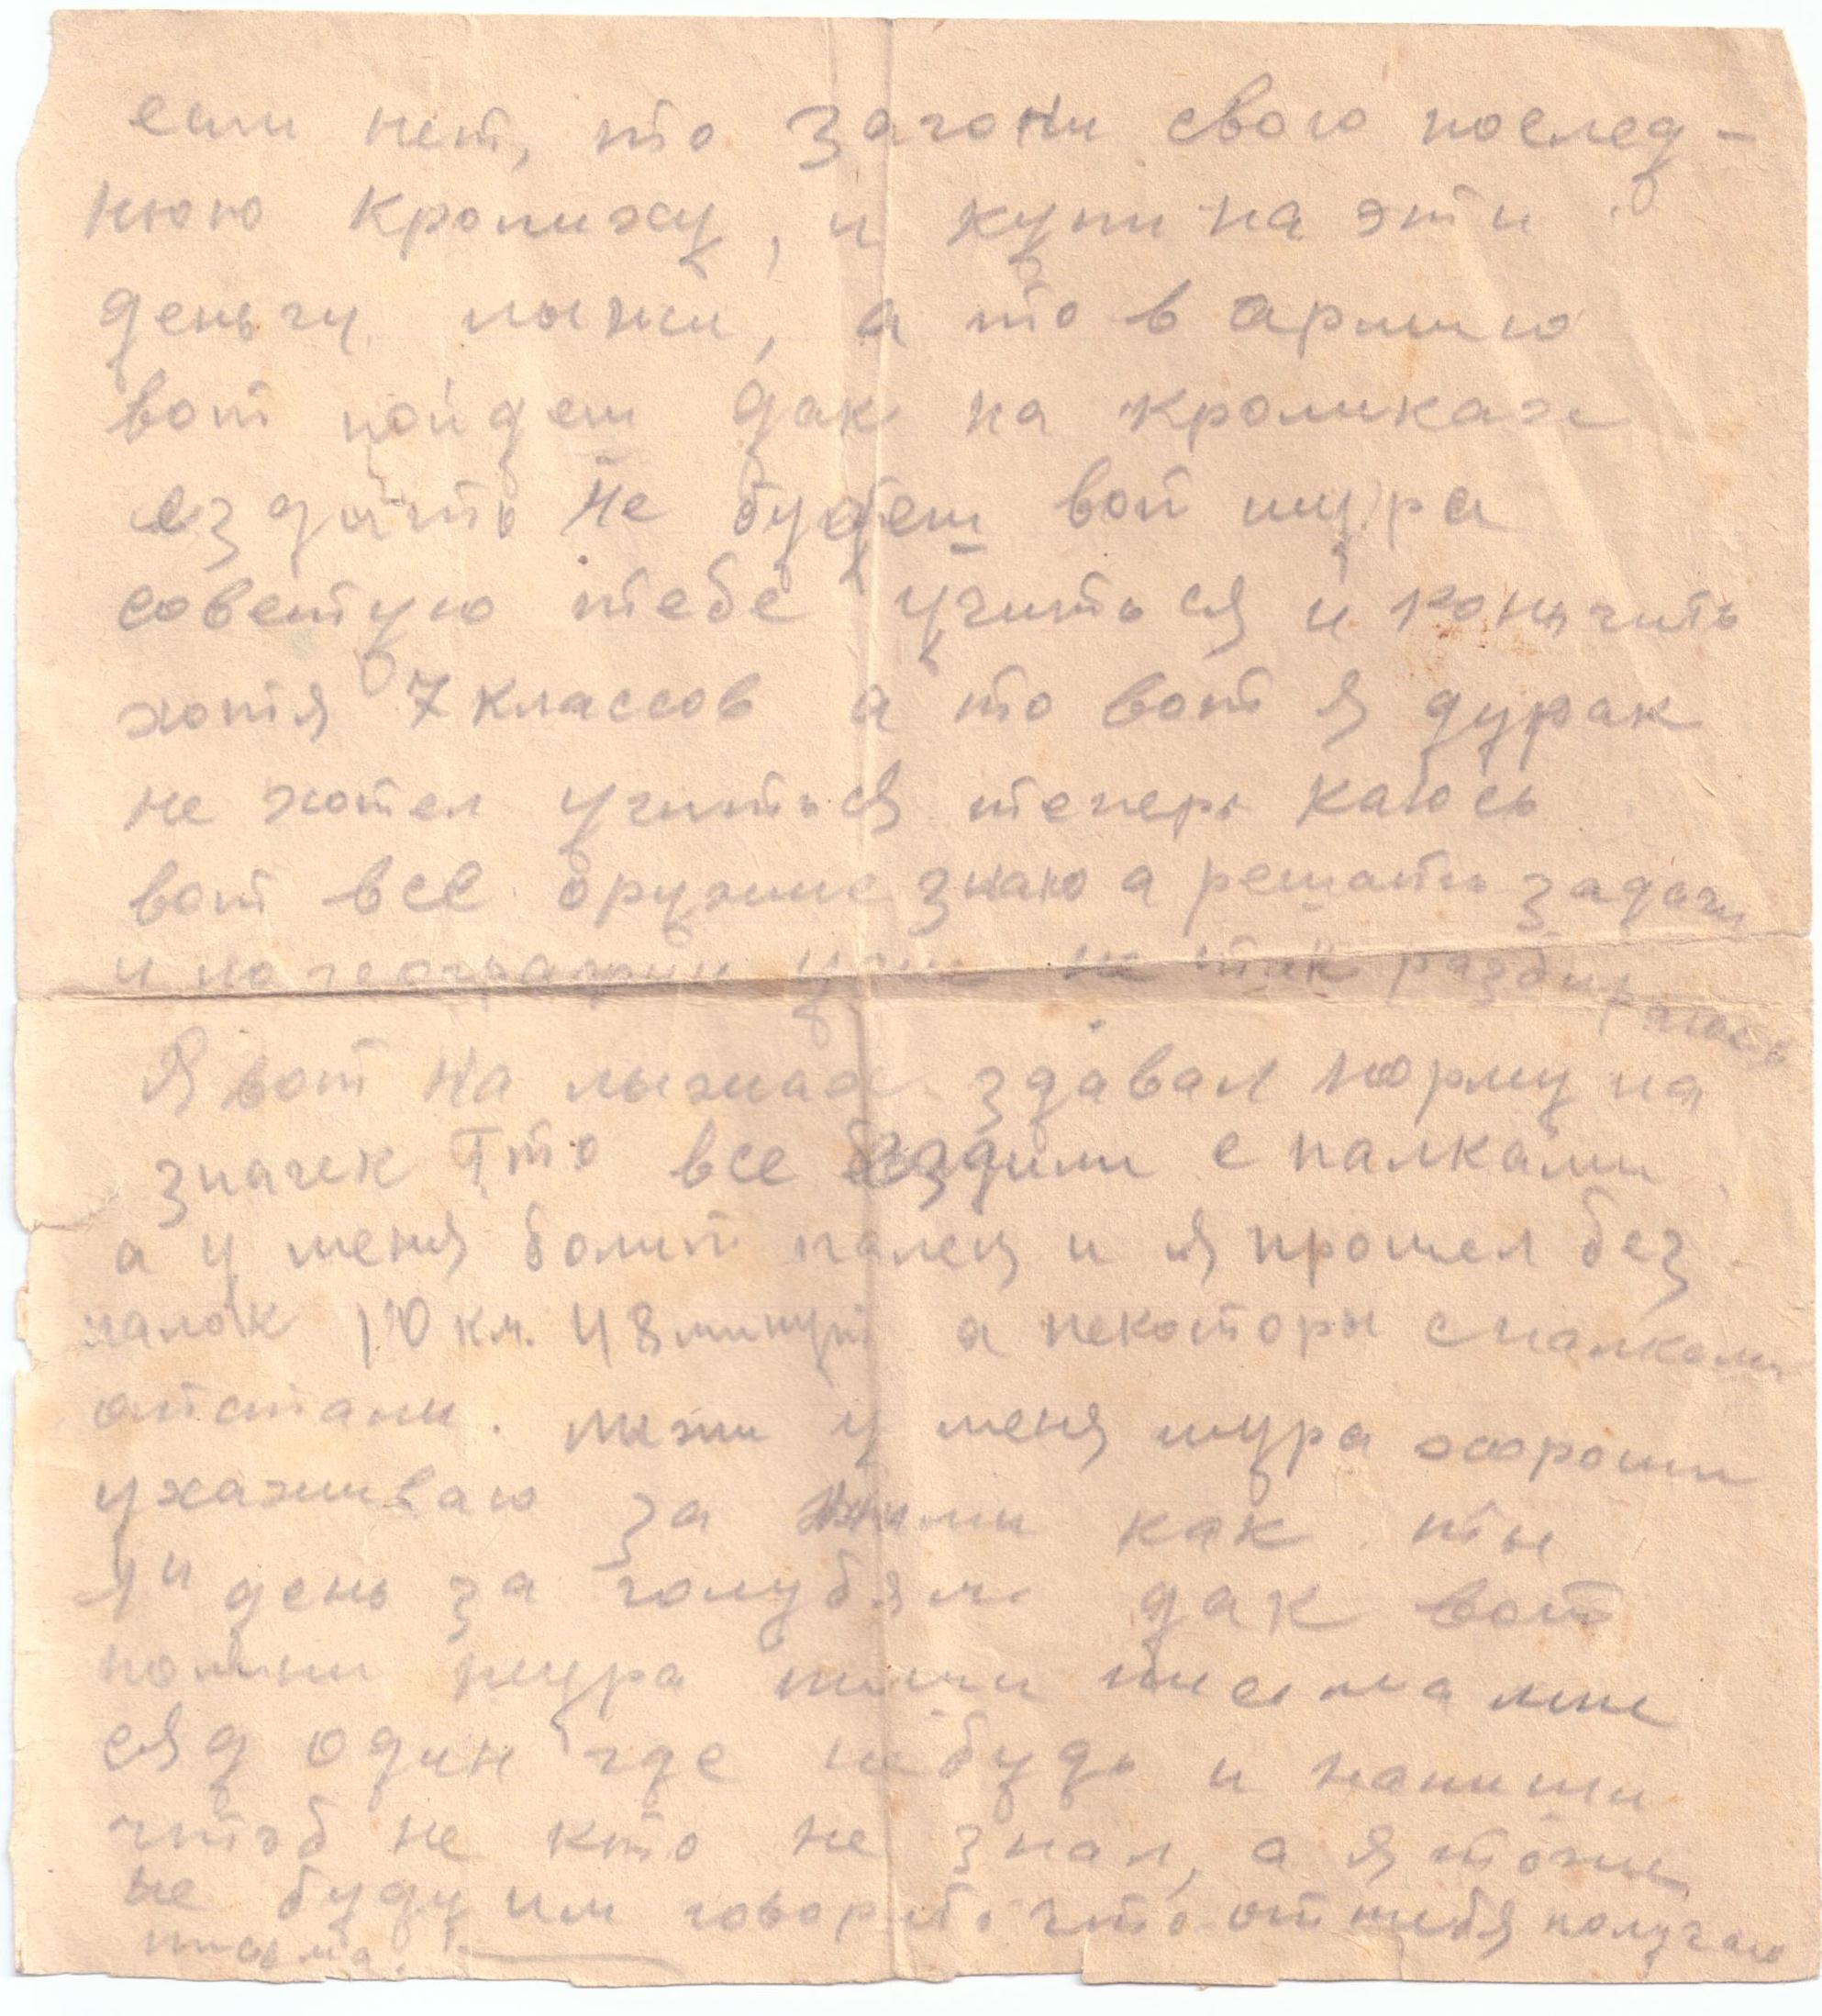 если нет, то загони свою послед-
нюю кролиху, и купи на эти
деньги лыжи, а то в армию
вот пойдеш дак на кроликах
ездить не будеш вот шура
советую тебе учиться и кончить
хотя 7 классов а то вот я дурак
не хотел учиться теперь каюсь
вот все оружие знаю а решать задачи
и по географии уже не так разбираюсь
Я вот на лыжах здавал норму на
значек ГТО все ездили с палками
а у меня болит палец и я прошел без
палок 10 км. 48 минут а некоторы с палками
отстали. лыжи у меня шура хороши
ухаживаю за ними как ты
день за голубями дак вот
помни шура пиши писма мне
сяд один где нибудь и напиши
чтоб не кто не знал, а я тоже
не буду им говорить что от тебя получаю
писма.